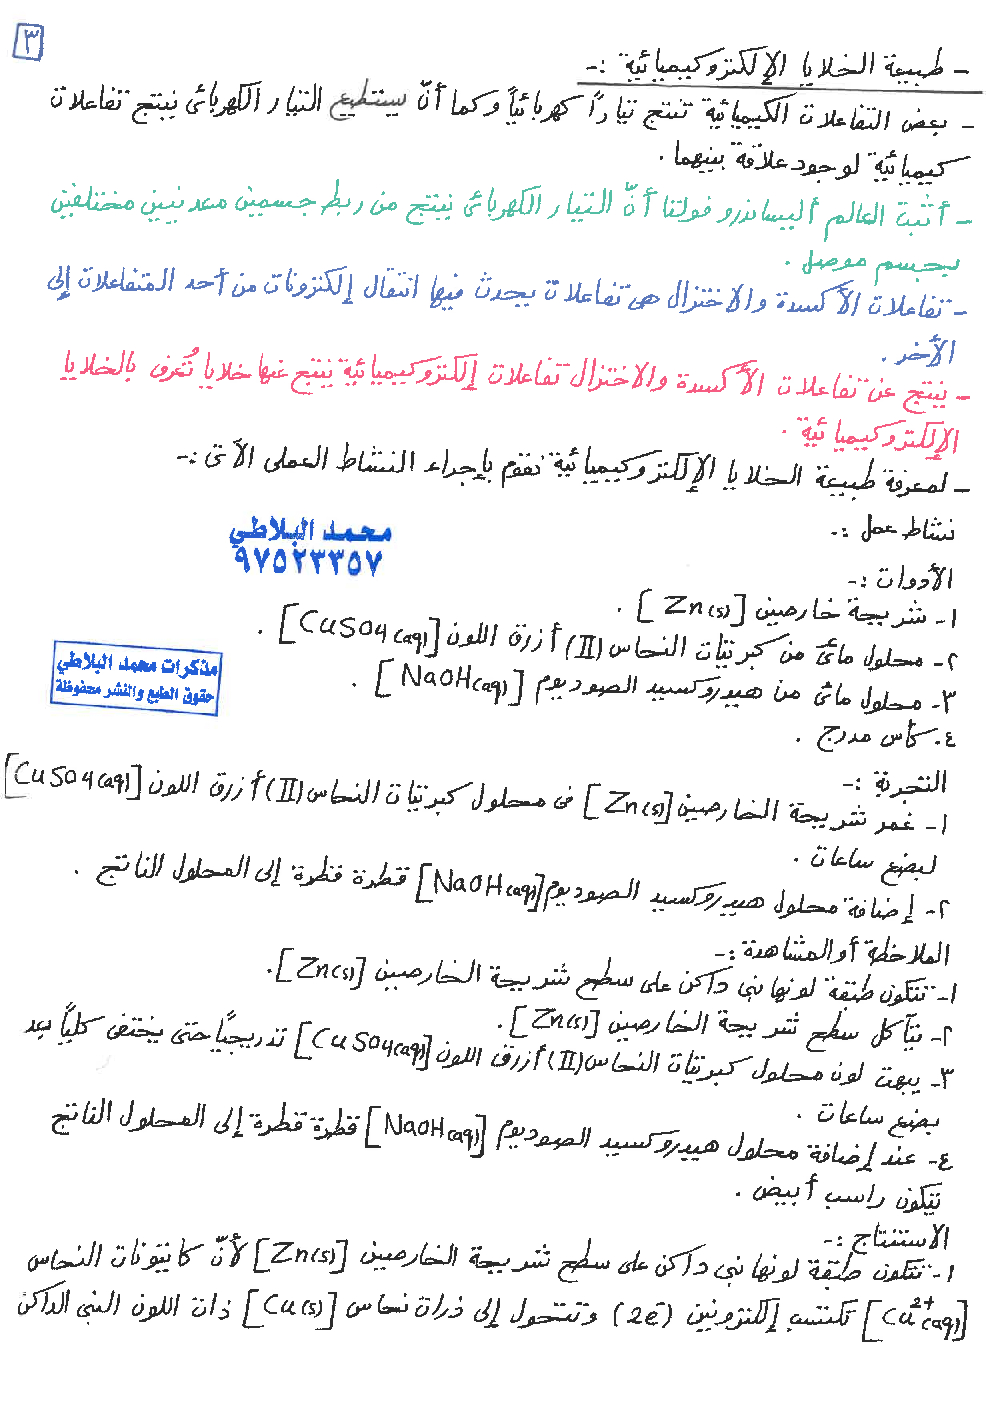 ٣
- طبيعة الخلايا الإلكتروكيميائية :-
- بعض التفاعلات الكيميائية تنتج تيارًا كهربائيًا وكما أنّ يستطيع التيار الكهربائى ينتج تفاعلات
كيميائية لوجود علاقة بينهما .
- أثبت العالم أليساندرو فولتا أنّ التيار الكهربائى ينتج من ربط جسمين معدنيين مختلفين
بجسم موصل .
- تفاعلات الأكسدة والاختزال هى تفاعلات يحدث فيها انتقال إلكترونات من أحد المتفاعلات إلى
الأخر .
- ينتج عن تفاعلات الأكسدة والاختزال تفاعلات إلكتروكيميائية ينتج عنها خلايا تُعرف بالخلايا
الإلكتروكيميائية .
- لمعرفة طبيعة الخلايا الإلكتروكيميائية نقوم بإجراء النشاط العملى الآتى :-
نشاط عمل :-
محمد البلاطي
٩٧٥٢٣٣٥٧
الأدوات :-
١- شريحة خارصين [Zn(s)] .
٢- محلول مائى من كبريتات النحاس (II) أزرق اللون [CuSO4(aq)] .
٣- محلول مائى من هيدروكسيد الصوديوم [NaOH(aq)] .
مذكرات محمد البلاطي
حقوق الطبع والنشر محفوظة
٤- كأس مدرج .
التجربة :-
١- غمر شريحة الخارصين [Zn(s)] فى محلول كبريتات النحاس (II) أزرق اللون [CuSO4(aq)]
لبضع ساعات .
٢- إضافة محلول هيدروكسيد الصوديوم [NaOH(aq)] قطرة قطرة إلى المحلول الناتج .
الملاحظة أو المشاهدة :-
١- تتكون طبقة لونها بنى داكن على سطح شريحة الخارصين [Zn(s)].
٢- يتآكل سطح شريحة الخارصين [Zn(s)].
٣- يبهت لون محلول كبريتات النحاس (II) أزرق اللون [CuSO4(aq)] تدريجيًا حتى يختفى كليًا بعد
بضع ساعات .
٤- عند إضافة محلول هيدروكسيد الصوديوم [NaOH(aq)] قطرة قطرة إلى المحلول الناتج
يتكون راسب أبيض .
الاستنتاج :-
١- تتكون طبقة لونها بنى داكن على سطح شريحة الخارصين [Zn(s)] لأنّ كاتيونات النحاس
[Cu²⁺(aq)] تكتسب إلكترونين (2e⁻) وتتحول إلى ذرات نحاس [Cu(s)] ذات اللون البنى الداكن